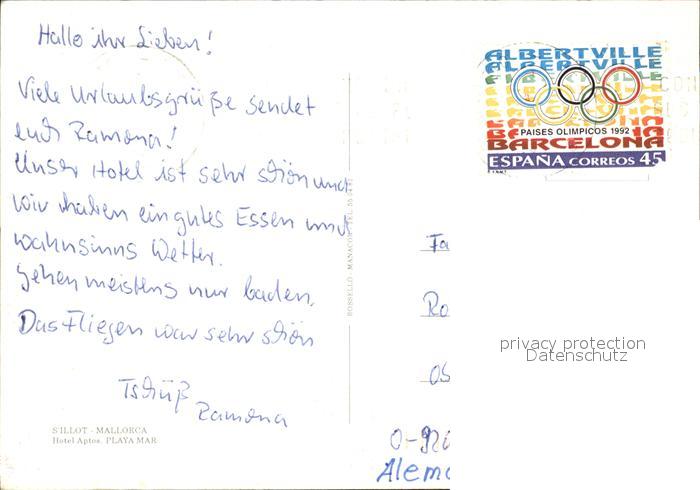 Hallo ihr Lieben!
Viele Urlaubsgrüße sendet
euch Ramona!
Unser Hotel ist sehr schön und
wir haben ein gutes Essen und
wahnsinns Wetter.
Gehen meistens nur baden.
Das Fliegen war sehr schön
Tschüß
Ramona
S'ILLOT - MALLORCA
Hotel Aptos. PLAYA MAR
ALBERTVILLE
ALBERTVILLE
PAISES OLIMPICOS 1992
BARCELONA
ESPAÑA CORREOS 45
Fa
Ro
OS
O-92
Alem
privacy protection
Datenschutz